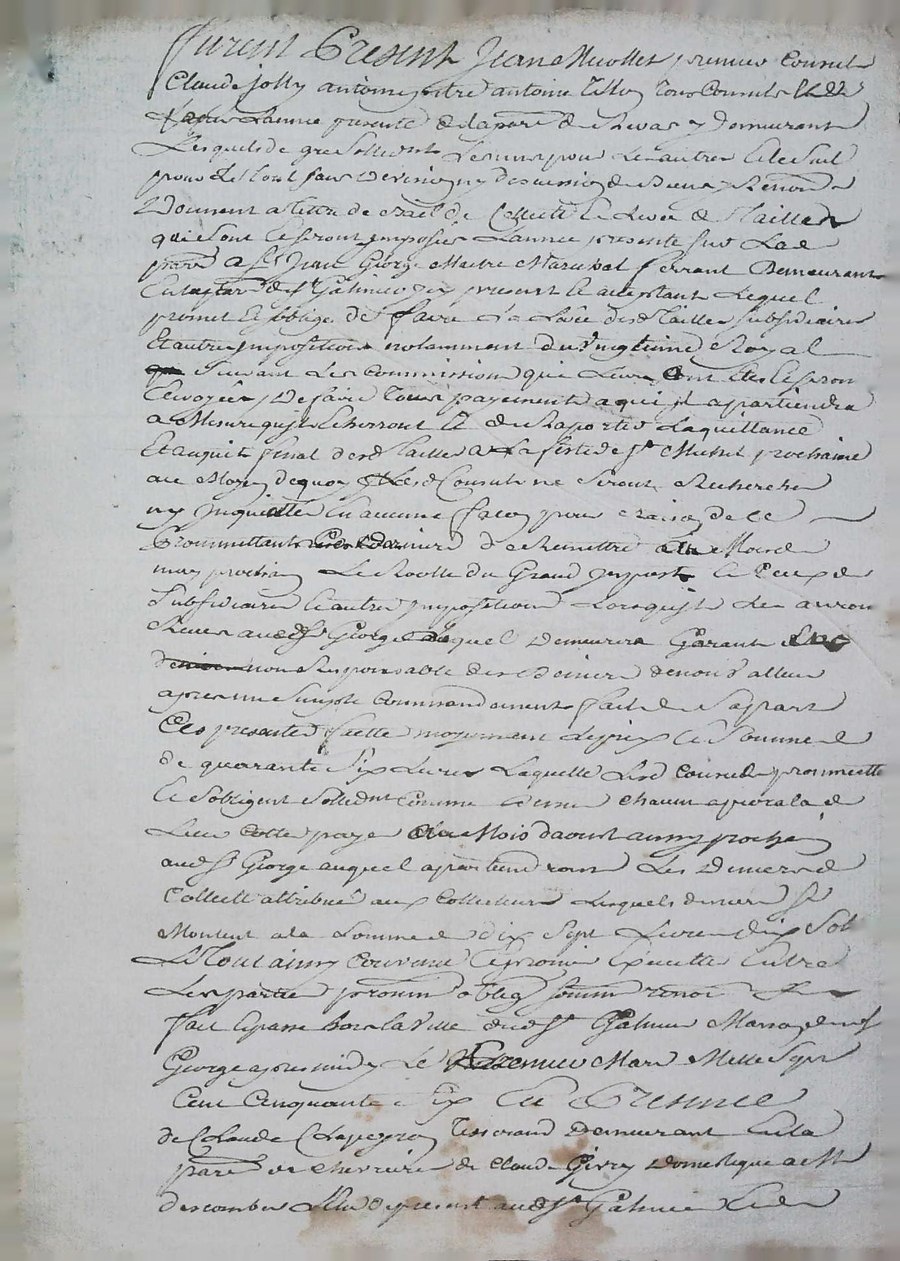 furent Present Jean Nicollet premier Consul
Claude jolly antoine antoine Tissy Tous Consuls
Lannée presente de la parr de y demeurant
Lesquels de gre sollidnt Lesuns pour Les autres Et le seul
pour Le tout sans Division ny discussion de Biens Renon
Donnent a titre de Bail de Collecte Et Levée de Tailles
qui sont Et seront imposées Lannée presente sur Lad
parr a Sr Jean George Maitre Marechal ferrant Demeurant
En la parr de St Galmier icy present Et aceptant Lequel
promet Et soblige de faire La Levée desd Tailles subsidiaires
Et autres impositions notamment du Vingtieme Royal
suivant Les Commissions qui Leurs ont Eté Et seron
Envoyées, De faire Tous payements a qui il apartiendra
a Mesure quils Echerront Et de Raporter La quittance
Et acquit final desd Tailles a La feste de St Michel prochaine
au Moyen dequoy Lesd Consuls ne seront Recherches
ny inquiettés En aucune facon pour Raison de ce
Promettants de Remettre Mois de
may prochain Le Roolle du Grand impost Et Ceux de
subsidiaires Et autres impositions Lorsquils Les auron
Receus aud Sr George Lequel Demeurera Garant
non Responsable des Deniers denonvalleur
apres un simple Commandement fait de sa part
Ces presentes faittes moyennant Le prix Et somme
de quarante six Livres Laquelle Lesd Consuls promette
Et sobligent sollidnt comme dessus chacun a porala
Leur Cotte payer au Mois daoust aussy prochain
aud Sr George auquel apartiendront Les Deniers de
Collecte attribués aux Collecteurs Lesquels deniers se
Montent a la somme de dix sept Livres dix Sols
Le Tout aussy Convenu Et promis Executter Entre
Les parties promis oblig soumm renon
fait Et passé hors la Ville dud St Galmier Maison dud Sr
George apres midy Le Premier Mars Mille sept
Cent Cinquante six En Presence
de Claude Clapeyron Tisserand Demeurant En la
parr de chevrieres de Claude Givry Domestique a Mr
descombes de present aud St Galmier